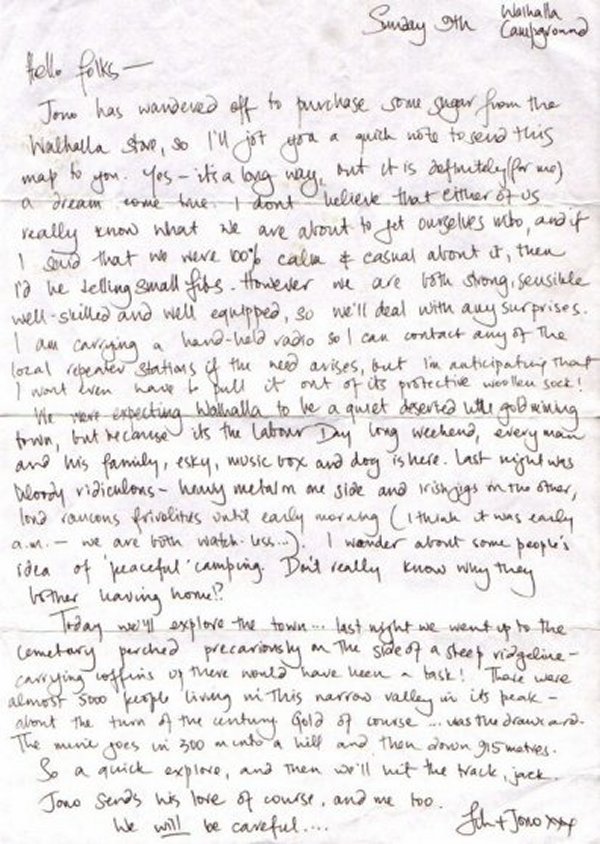 Sunday 9th Walhalla
Campground
Hello folks —
Jono has wandered off to purchase some sugar from the
Walhalla store, so I'll jot you a quick note to send this
map to you. Yes – it's a long way, but it is definitely (for me)
a dream come true. I dont believe that either of us
really know what we are about to get ourselves into, and if
I said that we were 100% calm & casual about it, then
I'd be telling small fibs. However we are both strong, sensible
well-skilled and well equipped, so we'll deal with any surprises.
I am carrying a hand-held radio so I can contact any of the
local repeater stations if the need arises, but I'm anticipating that
I wont even have to pull it out of its protective woollen sock!
We were expecting Walhalla to be a quiet deserted little gold mining
town, but because its the Labour Day long weekend, every man
and his family, esky, music box and dog is here. Last night was
bloody ridiculous – heavy metal on one side and Irish jigs on the other,
loud raucous frivolities until early morning (I think it was early
a.m. – we are both watch-less...). I wonder about some people's
idea of 'peaceful' camping. Don't really know why they
bother leaving home!?
Today we'll explore the town... last night we went up to the
cemetary perched precariously on the side of a steep ridgeline –
carrying coffins up there would have been a task! There were
almost 5000 people living in this narrow valley in its peak –
about the turn of the century. Gold of course ... was the drawcard.
The mine goes in 300 m into a hill and then down 915 metres.
So a quick explore, and then we'll hit the track, jack.
Jono sends his love of course, and me too.
We will be careful.... + Jono xxx